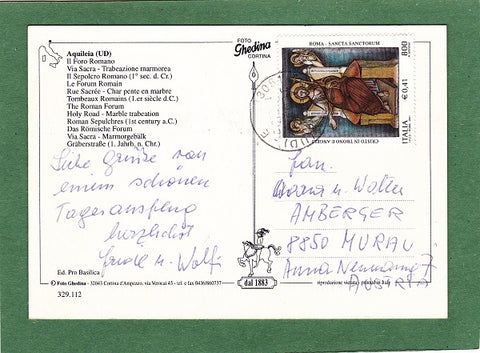 Aquileia (UD)
Il Foro Romano
Via Sacra - Trabeazione marmorea
Il Sepolcro Romano (1° sec. d. Cr.)
Le Forum Romain
Rue Sacrée - Char pente en marbre
Tombeaux Romains (1.er siècle d.C.)
The Roman Forum
Holy Road - Marble trabeation
Roman Sepulchres (1st century a.C.)
Das Römische Forum
Via Sacra - Marmorgebälk
Gräberstraße (1. Jahrh. n. Chr.)
Liebe Grüße von
einem schönen
Tagesausflug
herzlichst
u. Wolfi
Ed. Pro Basilica
© Foto Ghedina - 32043 Cortina d'Ampezzo, via Verocai 45 - tel. e fax 0436/860737
329.112
FOTO
Ghedina
CORTINA
dal 1883
ROMA - SANCTA SANCTORUM
800
€ 0,41
ITALIA
CRISTO IN TRONO E ANGELI
Fam.
u. Walter
AMBERGER
8850 MURAU
Anna Neumanng 7
AUSTRIA
riproduzione vietata - printed in Italy